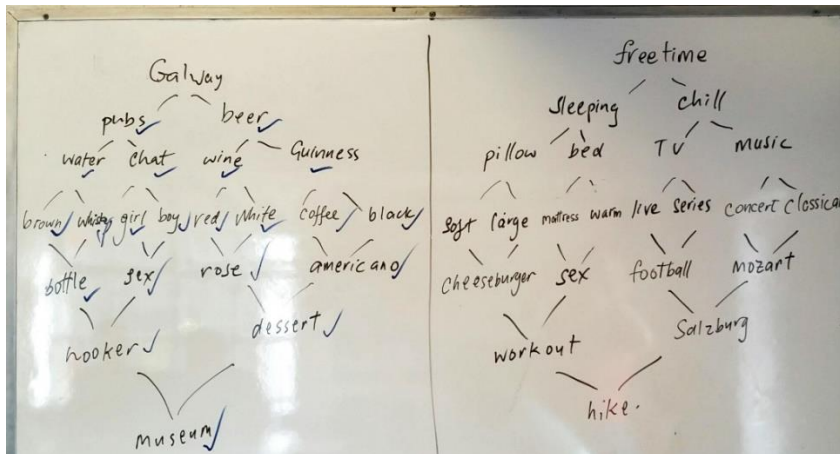 Galway
pubs beer
water chat wine Guinness
brown whisky girl boy red white coffee black
bottle sex rose americano
hooker dessert
museum
freetime
sleeping chill
pillow bed TV music
soft large mattress warm live series concert classical
cheeseburger sex football mozart
workout Salzburg
hike.